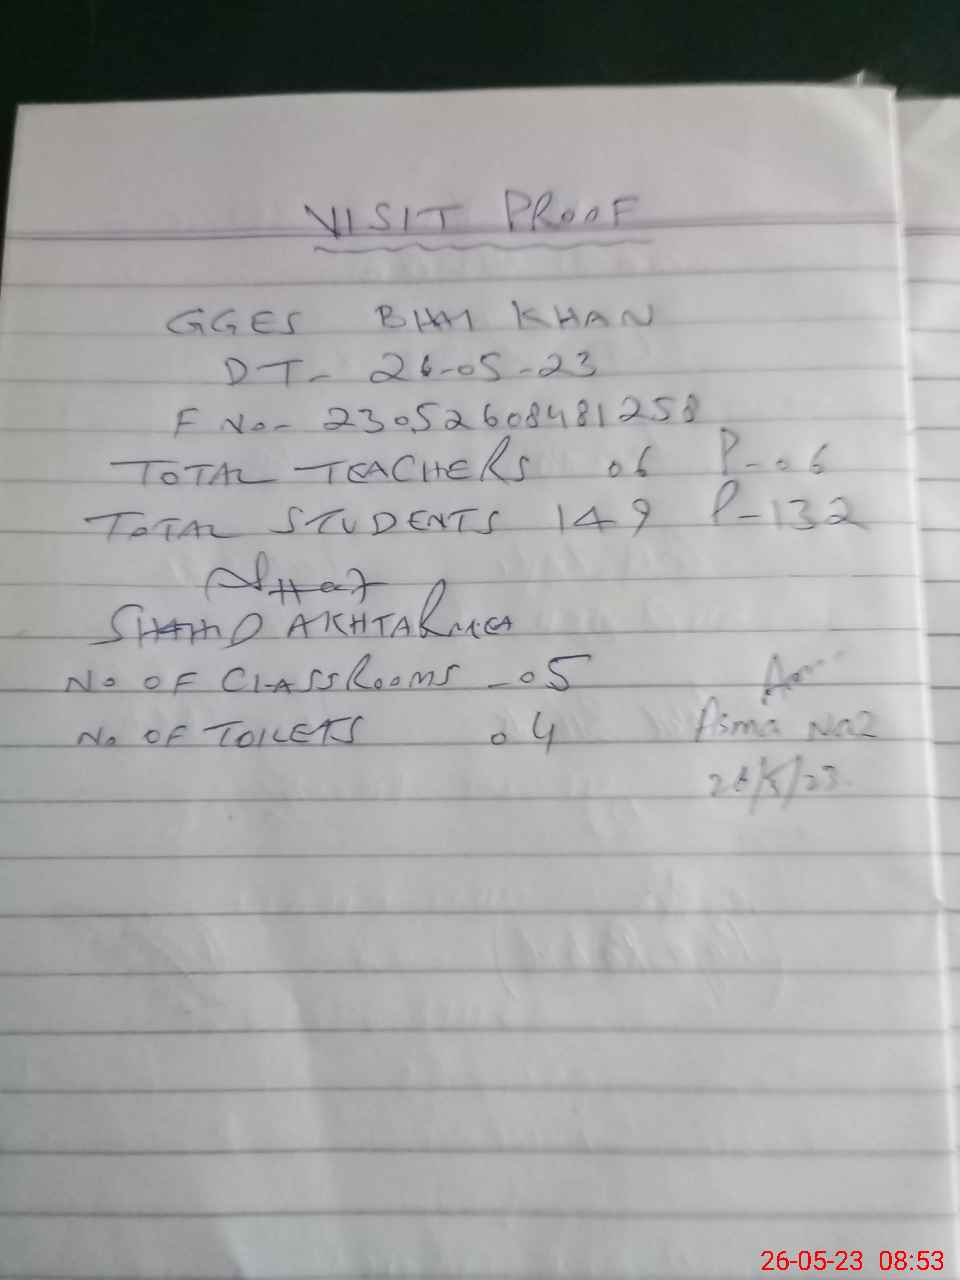 VISIT PROOF
GGES BHAI KHAN
DT- 26-05-23
F No- 23052608481258
TOTAL TEACHERS 06 P-06
TOTAL STUDENTS 149 P-132
AKHTAR MEA
No OF CLASSROOMS -05
No OF TOILETS 04
Asma Naz
26/5/23
26-05-23 08:53